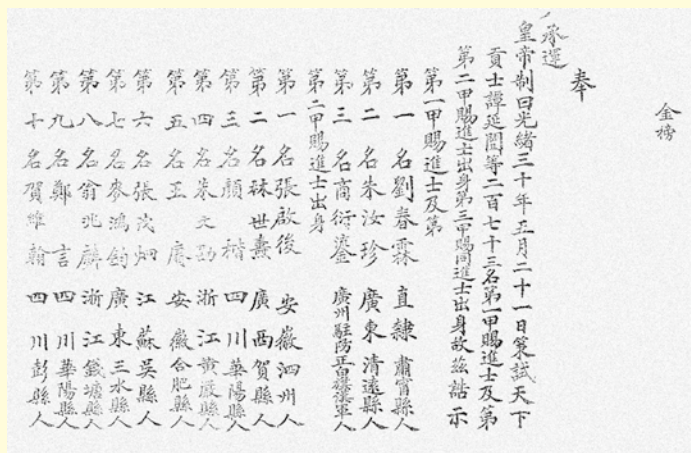 金榜
奉
承運
皇帝制曰光緒三十年五月二十一日策試天下
貢士譚延闓等二百七十三名第一甲賜進士及第
第二甲賜進士出身第三甲賜同進士出身故茲誥示
第一甲賜進士及第
第一名劉春霖 直隸肅寧縣人
第二名朱汝珍 廣東清遠縣人
第三名商衍鎏 廣州駐防正白旗漢軍人
第二甲賜進士出身
第一名張啟後 安徽泗州人
第二名林世燾 廣西賀縣人
第三名顏楷 四川華陽縣人
第四名朱文劭 浙江黃巖縣人
第五名王賡 安徽合肥縣人
第六名張茂炯 江蘇吳縣人
第七名麥鴻鈞 廣東三水縣人
第八名翁兆麟 浙江錢塘縣人
第九名鄭言 四川華陽縣人
第十名賀維翰 四川彭縣人